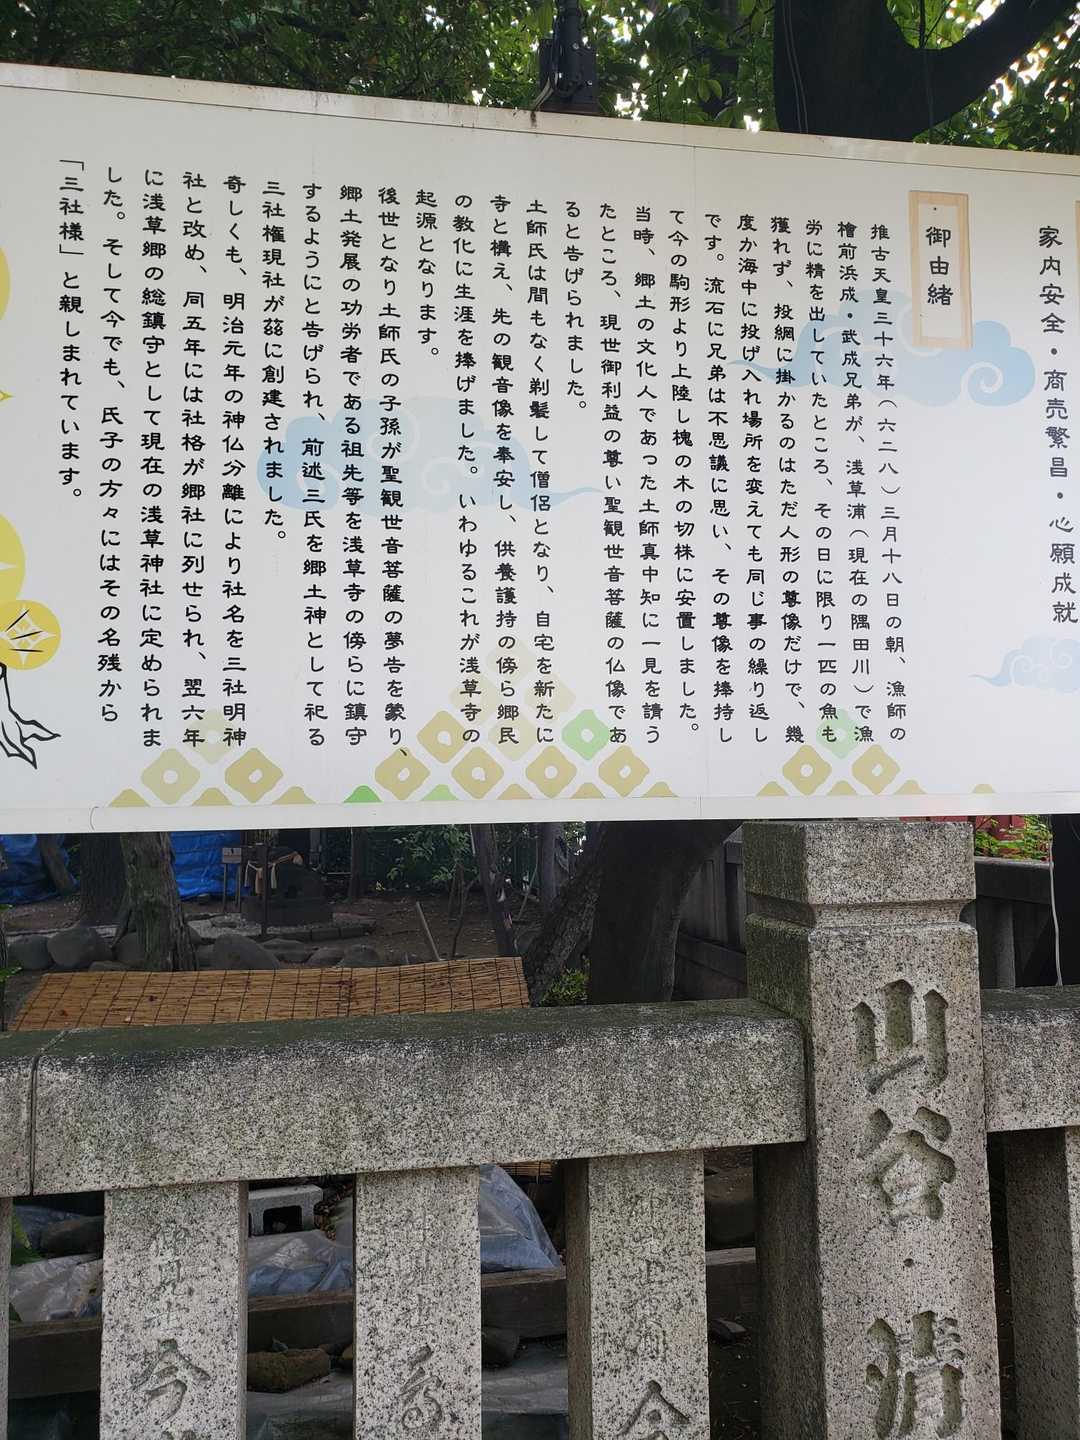 家内安全・商売繁昌・心願成就
御由緒
推古天皇三十六年（六二八）三月十八日の朝、漁師の
檜前浜成・武成兄弟が、浅草浦（現在の隅田川）で漁
労に精を出していたところ、その日に限り一匹の魚も
獲れず、投網に掛かるのはただ人形の尊像だけで、幾
度か海中に投げ入れ場所を変えても同じ事の繰り返し
です。流石に兄弟は不思議に思い、その尊像を捧持し
て今の駒形より上陸し槐の木の切株に安置しました。
当時、郷土の文化人であった土師真中知に一見を請う
たところ、現世御利益の尊い聖観世音菩薩の仏像であ
ると告げられました。
土師氏は間もなく剃髪して僧侶となり、自宅を新たに
寺と構え、先の観音像を奉安し、供養護持の傍ら郷民
の教化に生涯を捧げました。いわゆるこれが浅草寺の
起源となります。
後世となり土師氏の子孫が聖観世音菩薩の夢告を蒙り、
郷土発展の功労者である祖先等を浅草寺の傍らに鎮守
するようにと告げられ、前述三氏を郷土神として祀る
三社権現社が茲に創建されました。
奇しくも、明治元年の神仏分離により社名を三社明神
社と改め、同五年には社格が郷社に列せられ、翌六年
に浅草郷の総鎮守として現在の浅草神社に定められま
した。そして今でも、氏子の方々にはその名残から
「三社様」と親しまれています。
山谷・清
今